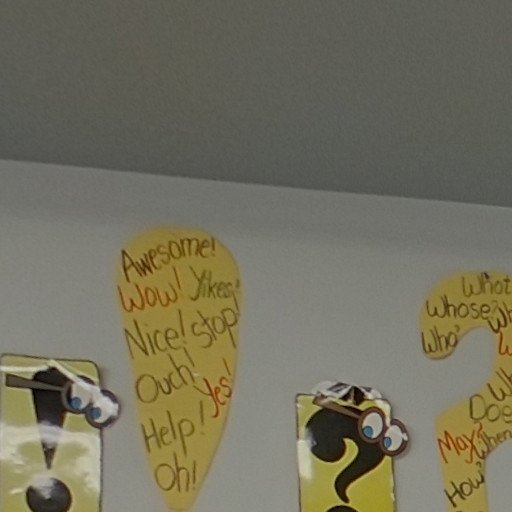 Awesome!
Wow! Yikes!
Nice! Stop!
Ouch!
Yes!
Help!
Oh!
!
?
What
Whose?
Who?
Does
May?
When
How?